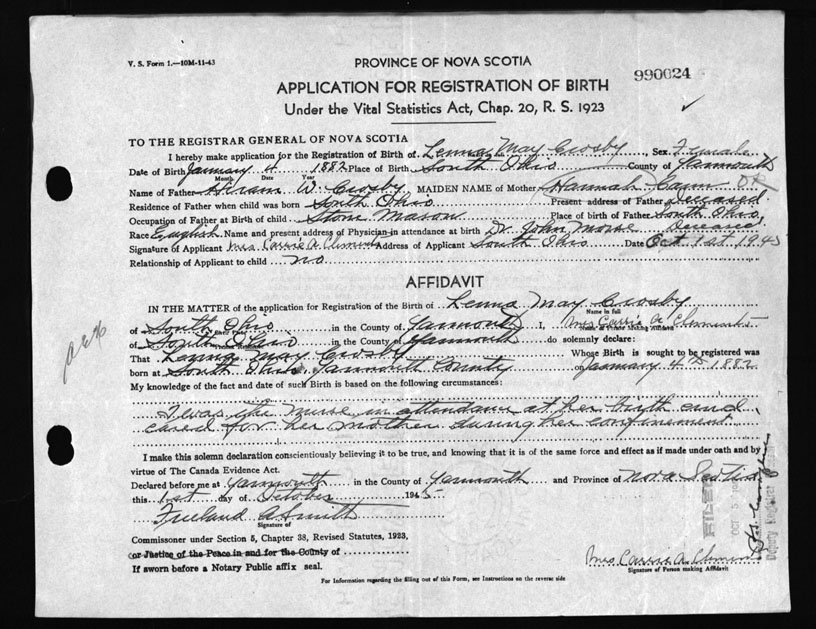 V. S. Form 1.—10M-11-43
PROVINCE OF NOVA SCOTIA
990024
APPLICATION FOR REGISTRATION OF BIRTH
Under the Vital Statistics Act, Chap. 20, R. S. 1923
TO THE REGISTRAR GENERAL OF NOVA SCOTIA
I hereby make application for the Registration of Birth of Lenna May Crosby, Sex Female
Date of Birth January 4 1882 Place of Birth South Ohio County of Yarmouth
Month Date Year
Name of Father Hiram W. Crosby MAIDEN NAME of Mother Hannah Cann
Residence of Father when child was born South Ohio Present address of Father Deceased
Occupation of Father at Birth of child Stone Mason Place of birth of Father South Ohio
Race English Name and present address of Physician in attendance at birth Dr. John Morse Deceased
Signature of Applicant Mrs Carrie A. Clements Address of Applicant South Ohio Date Oct 1st 1945
Relationship of Applicant to child no
AFFIDAVIT
IN THE MATTER of the application for Registration of the Birth of Lenna May Crosby
Name in full
of South Ohio in the County of Yarmouth I, Mrs Carrie A Clements
Name of Person Making Affidavit
of South Ohio in the County of Yarmouth do solemnly declare:
That Lenna May Crosby Whose Birth is sought to be registered was
born at South Ohio, Yarmouth County on January 4th 1882
My knowledge of the fact and date of such Birth is based on the following circumstances:
I was the nurse in attendance at her birth and
cared for her mother during her confinement.
I make this solemn declaration conscientiously believing it to be true, and knowing that it is of the same force and effect as if made under oath and by
virtue of The Canada Evidence Act.
Declared before me at Yarmouth in the County of Yarmouth and Province of Nova Scotia
this 1st day of October 1945
Freeland A Smith
Signature of
Commissioner under Section 5, Chapter 38, Revised Statutes, 1923,
or Justice of the Peace in and for the County of
If sworn before a Notary Public affix seal.
Mrs Carrie A. Clements
Signature of Person making Affidavit
For Information regarding the filling out of this Form, see Instructions on the reverse side
FILED
OCT
Deputy Registrar